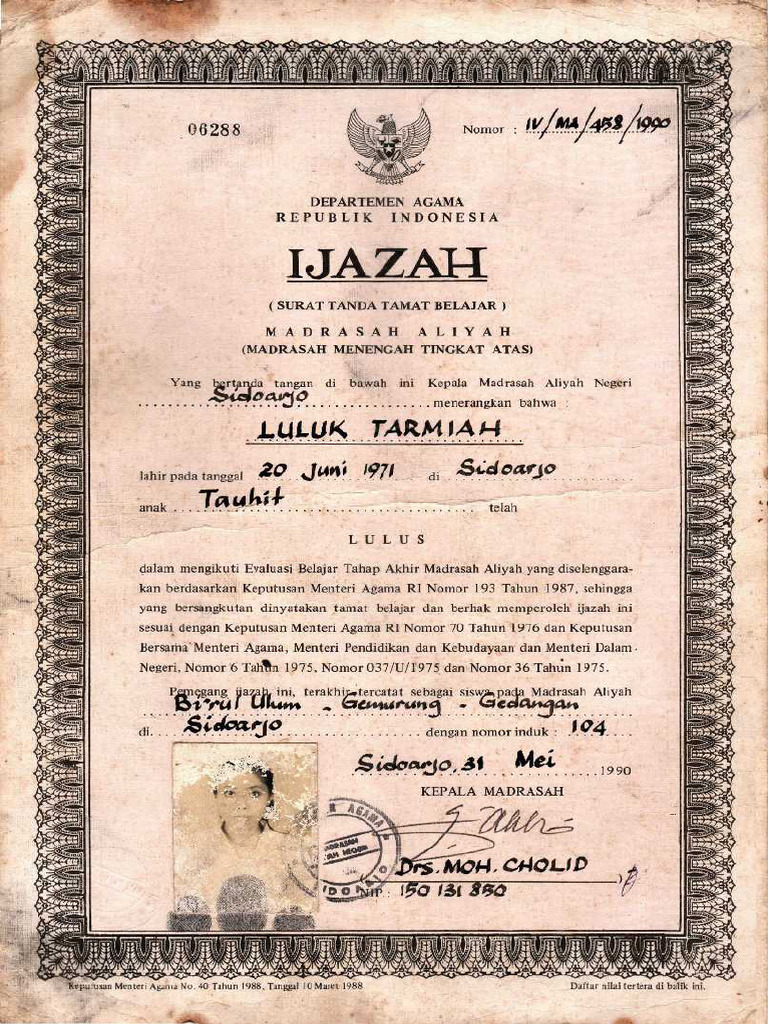 06288
Nomor : IV/MA/458/1990
DEPARTEMEN AGAMA
REPUBLIK INDONESIA
IJAZAH
( SURAT TANDA TAMAT BELAJAR )
MADRASAH ALIYAH
(MADRASAH MENENGAH TINGKAT ATAS)
Yang bertanda tangan di bawah ini Kepala Madrasah Aliyah Negeri
Sidoarjo menerangkan bahwa :
LULUK TARMIAH
lahir pada tanggal 20 Juni 1971 di Sidoarjo
anak Tauhit telah
LULUS
dalam mengikuti Evaluasi Belajar Tahap Akhir Madrasah Aliyah yang diselenggara-
kan berdasarkan Keputusan Menteri Agama RI Nomor 193 Tahun 1987, sehingga
yang bersangkutan dinyatakan tamat belajar dan berhak memperoleh ijazah ini
sesuai dengan Keputusan Menteri Agama RI Nomor 70 Tahun 1976 dan Keputusan
Bersama Menteri Agama, Menteri Pendidikan dan Kebudayaan dan Menteri Dalam
Negeri, Nomor 6 Tahun 1975, Nomor 037/U/1975 dan Nomor 36 Tahun 1975.
Pemegang ijazah ini, terakhir tercatat sebagai siswa pada Madrasah Aliyah
Bi'rul Ulum - Gemurung - Gedangan
di Sidoarjo dengan nomor induk : 104
Sidoarjo, 31 Mei 1990
KEPALA MADRASAH
AGAMA
MADRASAH
NEGERI
SIDOARJO
Drs. MOH. CHOLID
NIP : 150 131 850
Keputusan Menteri Agama No. 40 Tahun 1988, Tanggal 10 Maret 1988
Daftar nilai tertera di balik ini.